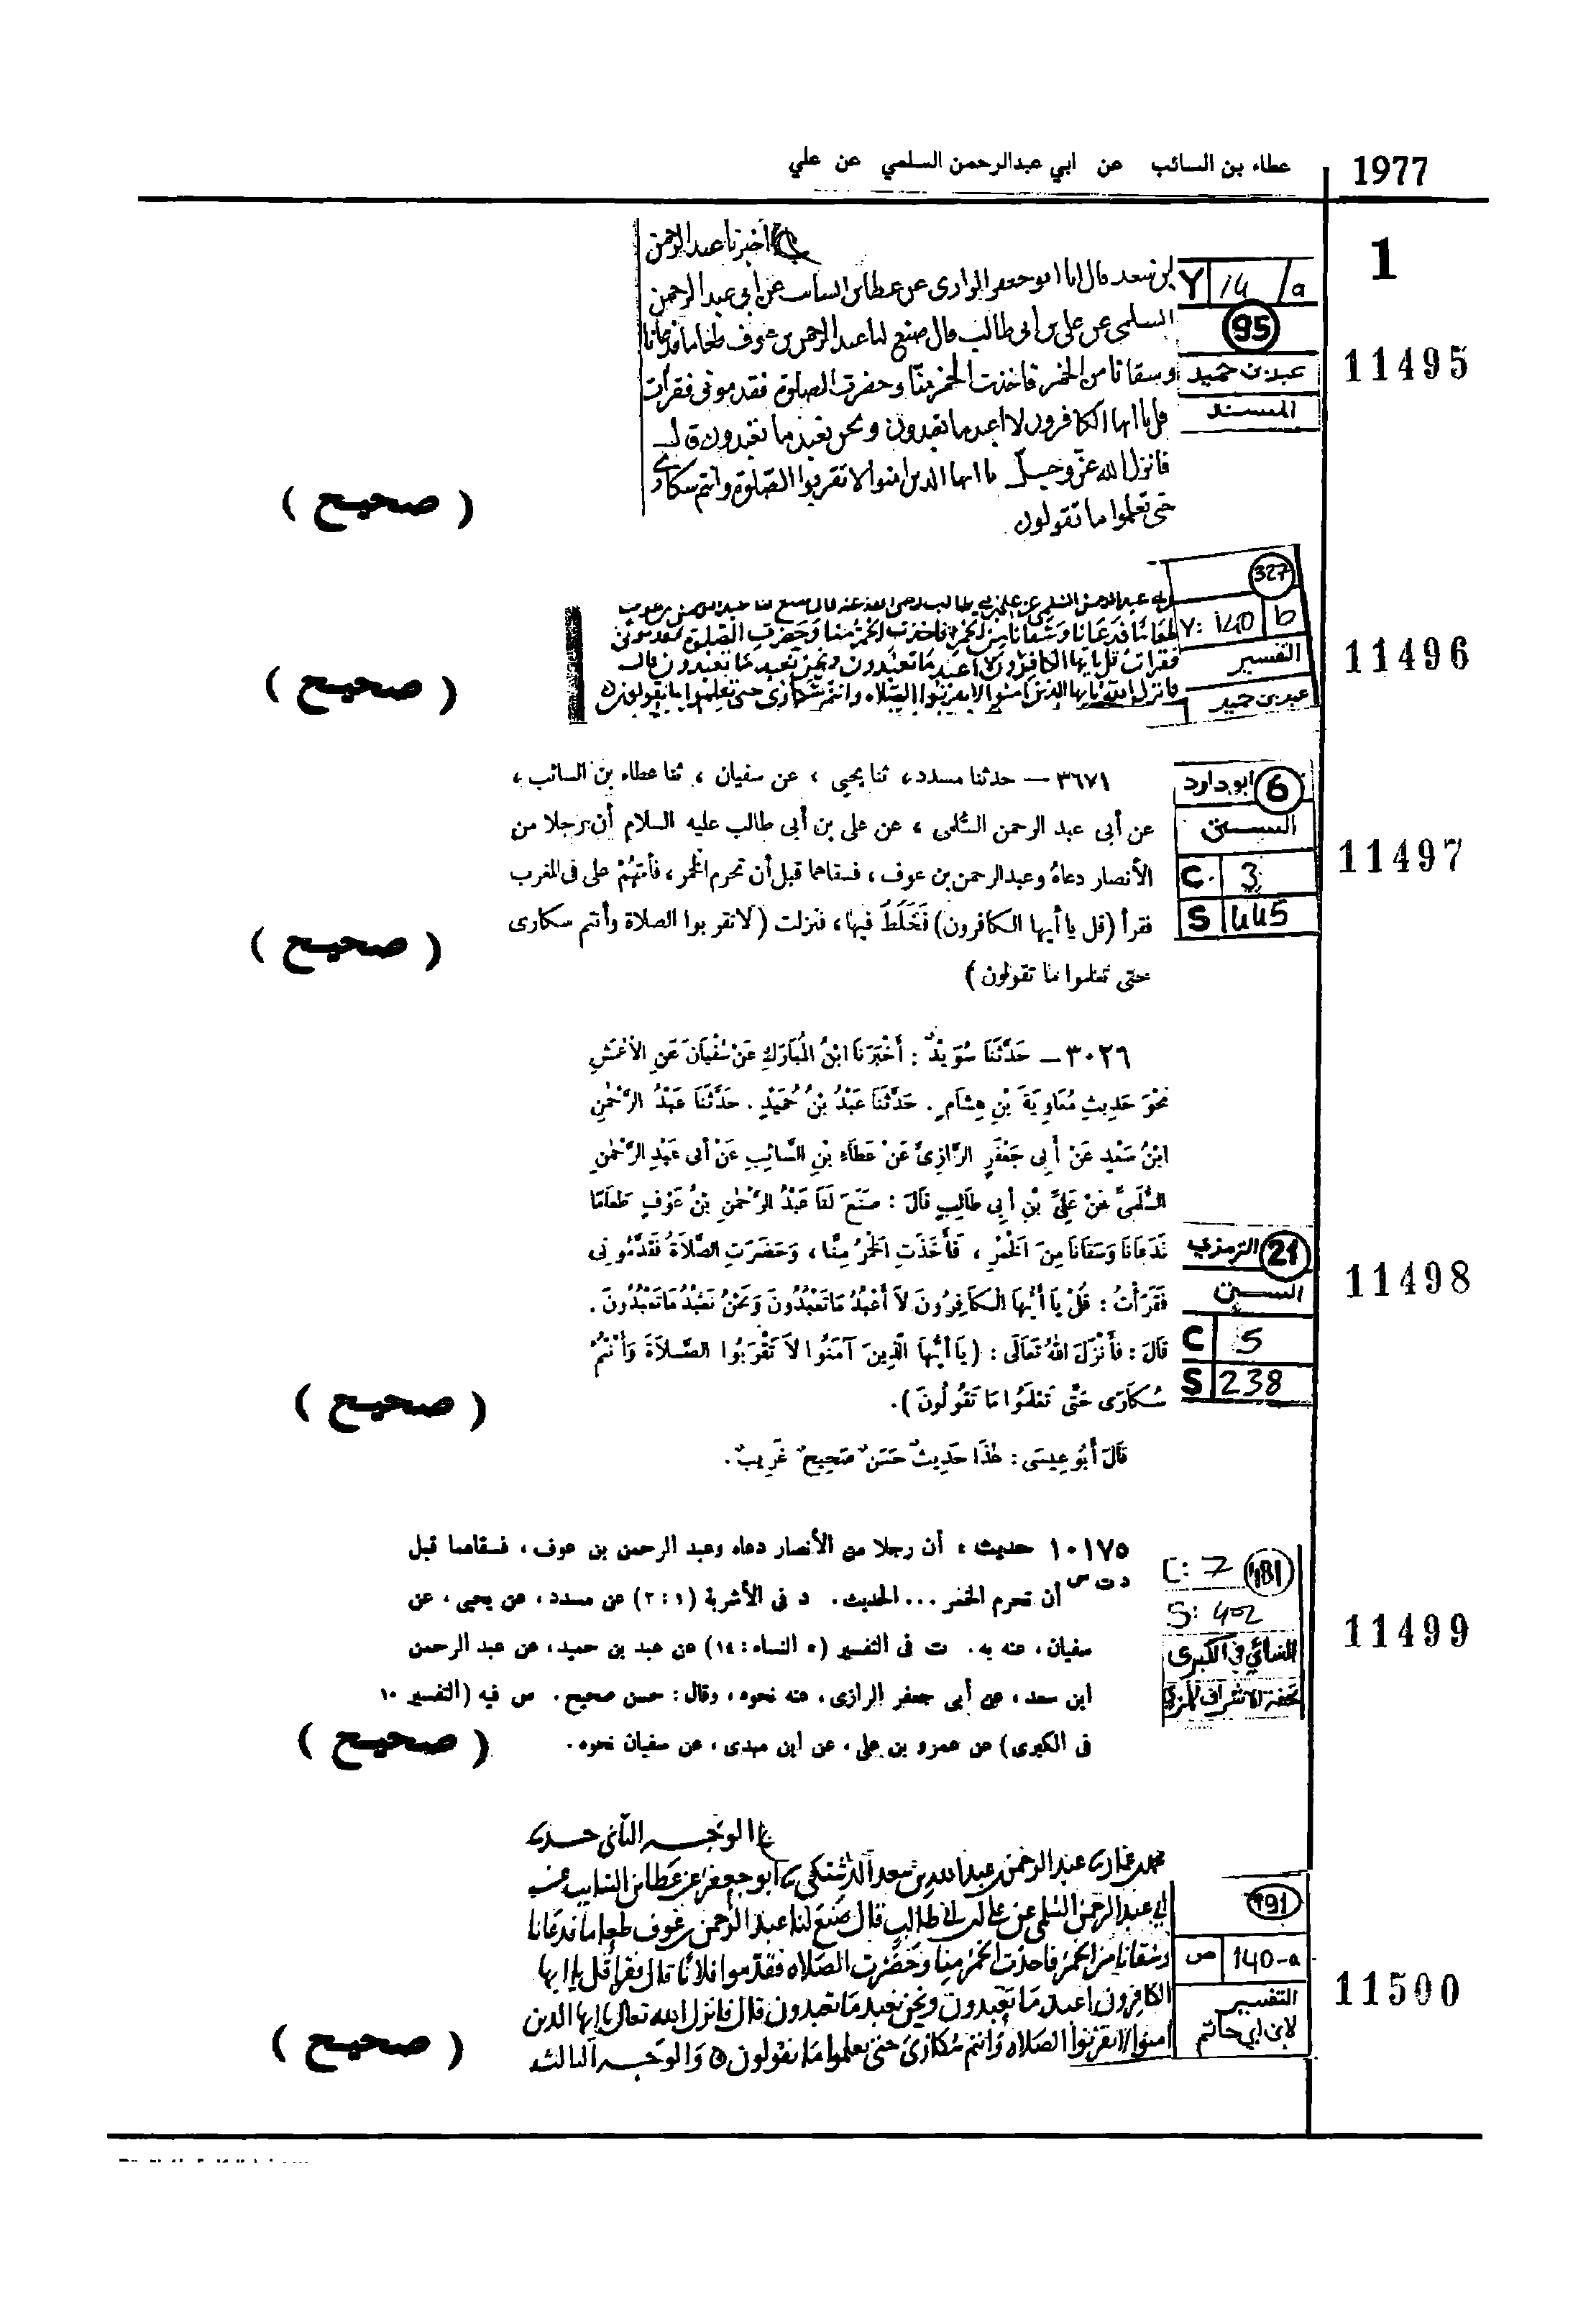 1977 عطاء بن السائب عن ابي عبدالرحمن السلمي عن علي
1
اخبرنا عبد الرحمن
بن سعد قال انا ابو جعفر الرازى عن عطا بن السائب عن ابي عبد الرحمن
السلمى عن على بن ابى طالب قال صنع لنا عبد الرحمن بن عوف طعاما فدعانا
وسقانا من الخمر فاخذت الخمر منا وحضرت الصلوة فقدمونى فقرات
قل يا ايها الكافرون لا اعبد ما تعبدون ونحن نعبد ما تعبدون قال
فانزل الله عز وجل يا ايها الذين امنوا لا تقربوا الصلوة وانتم سكارى
حتى تعلموا ما تقولون
Y 14 / a
95
عبد بن حميد
المسند
11495
( صحيح )
ابي عبد الرحمن السلمي عن علي بن ابي طالب رضى الله عنه قال صنع لنا عبد الرحمن بن عوف
طعاما فدعانا وسقانا من الخمر فاخذت الخمر منا وحضرت الصلوة فقدموني
فقرات قل يايها الكافرون لا اعبد ما تعبدون ونحن نعبد ما تعبدون قال
فانزل الله يايها الذين امنوا لا تقربوا الصلاه وانتم سكارى حتى تعلموا ما تقولون
327
Y: 140 b
التفسير
عبد بن حميد
11496
( صحيح )
٣٦٧١ — حدثنا مسدد، ثنا يحيى ، عن سفيان ، ثنا عطاء بن السائب ،
عن أبى عبد الرحمن السُّلمى ، عن على بن أبى طالب عليه السلام أن رجلا من
الأنصار دعاهُ وعبدالرحمن بن عوف ، فسقاهما قبل أن تحرم الخمر ، فأمَّهُمْ على فى المغرب
فقرأ (قل يا أيها الكافرون) فَخَلَطَ فيها، فنزلت (لا تقربوا الصلاة وأنتم سكارى
حتى تعلموا ما تقولون )
ابو داود 6
السنن
C. 3
S 445
11497
( صحيح )
٣٠٢٦ — حَدَّثَنَا سُوَيْدٌ : أَخْبَرَنَا ابْنُ الْمُبَارَكِ عَنْ سُفْيَانَ عَنِ الْأَعْمَشِ
نَحْوَ حَدِيثِ مُعَاوِيَةَ بْنِ هِشَامٍ . حَدَّثَنَا عَبْدُ بْنُ حُمَيْدٍ . حَدَّثَنَا عَبْدُ الرَّحْمٰنِ
ابْنُ سَعْدٍ عَنْ أَبِى جَعْفَرٍ الرَّازِىِّ عَنْ عَطَاءِ بْنِ السَّائِبِ عَنْ أَبى عَبْدِ الرَّحْمٰنِ
السُّلَمِىِّ عَنْ عَلِىِّ بْنِ أَبِى طَالِبٍ قَالَ : صَنَعَ لَنَا عَبْدُ الرَّحْمٰنِ بْنُ عَوْفٍ طَعَامًا
فَدَعَانَا وَسَقَانَا مِنَ الْخَمْرِ ، فَأَخَذَتِ الْخَمْرُ مِنَّا ، وَحَضَرَتِ الصَّلَاةُ فَقَدَّمُونِى
فَقَرَأْتُ : قُلْ يَا أَيُّهَا الْكَافِرُونَ لَا أَعْبُدُ مَا تَعْبُدُونَ وَنَحْنُ نَعْبُدُ مَا تَعْبُدُونَ .
قَالَ : فَأَنْزَلَ اللهُ تَعَالَى : ( يَا أَيُّهَا الَّذِينَ آمَنُوا لَا تَقْرَبُوا الصَّلَاةَ وَأَنْتُمْ
سُكَارَى حَتَّى تَعْلَمُوا مَا تَقُولُونَ ) .
قَالَ أَبُو عِيسَى : هٰذَا حَدِيثٌ حَسَنٌ صَحِيحٌ غَرِيبٌ .
الترمذي 21
السنن
C 5
S 238
11498
( صحيح )
١٠١٧٥ حديث : أن رجلا من الأنصار دعاه وعبد الرحمن بن عوف ، فسقاهما قبل
د ت س أن تحرم الخمر ... الحديث . د فى الأشربة (١ : ٢) عن مسدد ، عن يحيى ، عن
سفيان ، عنه به . ت فى التفسير (٥ النساء : ١٤) عن عبد بن حميد ، عن عبد الرحمن
ابن سعد ، عن أبى جعفر الرازى ، عنه نحوه ، وقال : حسن صحيح . س فيه (التفسير ١٠
فى الكبرى) عن عمرو بن على ، عن ابن مهدى ، عن سفيان نحوه .
C: 7 181
S: 402
النسائي في الكبرى
تحفة الاشراف للمزي
11499
( صحيح )
الوجه الثاني حدثنا
محمد بن عمار ثنا عبد الرحمن بن عبد الله بن سعد الدشتكي ثنا ابو جعفر عن عطا بن السايب عن
ابي عبد الرحمن السلمي عن علي بن ابي طالب قال صنع لنا عبد الرحمن بن عوف طعاما فدعانا
وسقانا من الخمر فاخذت الخمر منا وحضرت الصلاه فقدموا فلانا قال فقرا قل يا ايها
الكافرون اعبد ما تعبدون ونحن نعبد ما تعبدون قال فانزل الله تعالى يا ايها الذين
امنوا لا تقربوا الصلاه وانتم سكارى حتى تعلموا ما تقولون والوجه الثالث
191
ص 140-a
التفسير
لابن ابي حاتم
11500
( صحيح )